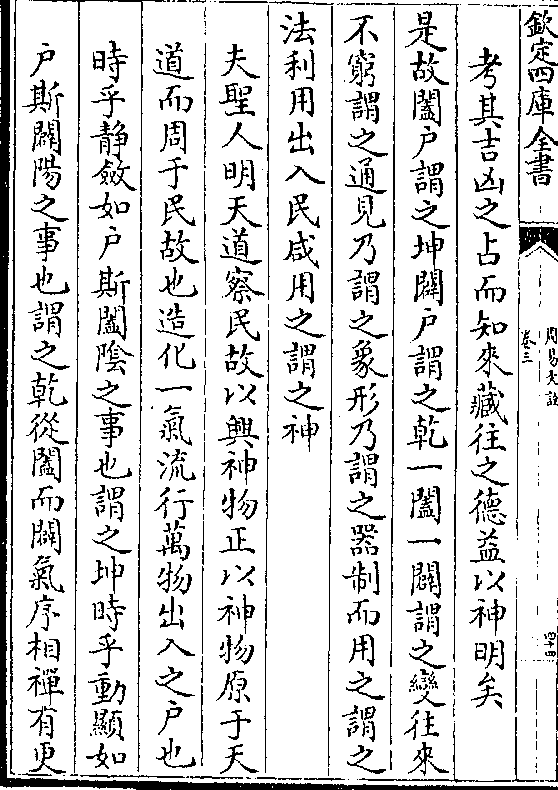 欽定四庫全書
周易大註
卷三
四十四
考其吉凶之占而知來藏往之德益以神明矣
是故闔户謂之坤闢户謂之乾一闔一闢謂之變往來
不窮謂之通見乃謂之象形乃謂之器制而用之謂之
法利用出入民咸用之謂之神
夫聖人明天道察民故以興神物正以神物原于天
道而周于民故也造化一氣流行萬物出入之户也
時乎静斂如户斯闔陰之事也謂之坤時乎動顯如
户斯闢陽之事也謂之乾從闔而闢氣序相禪有更